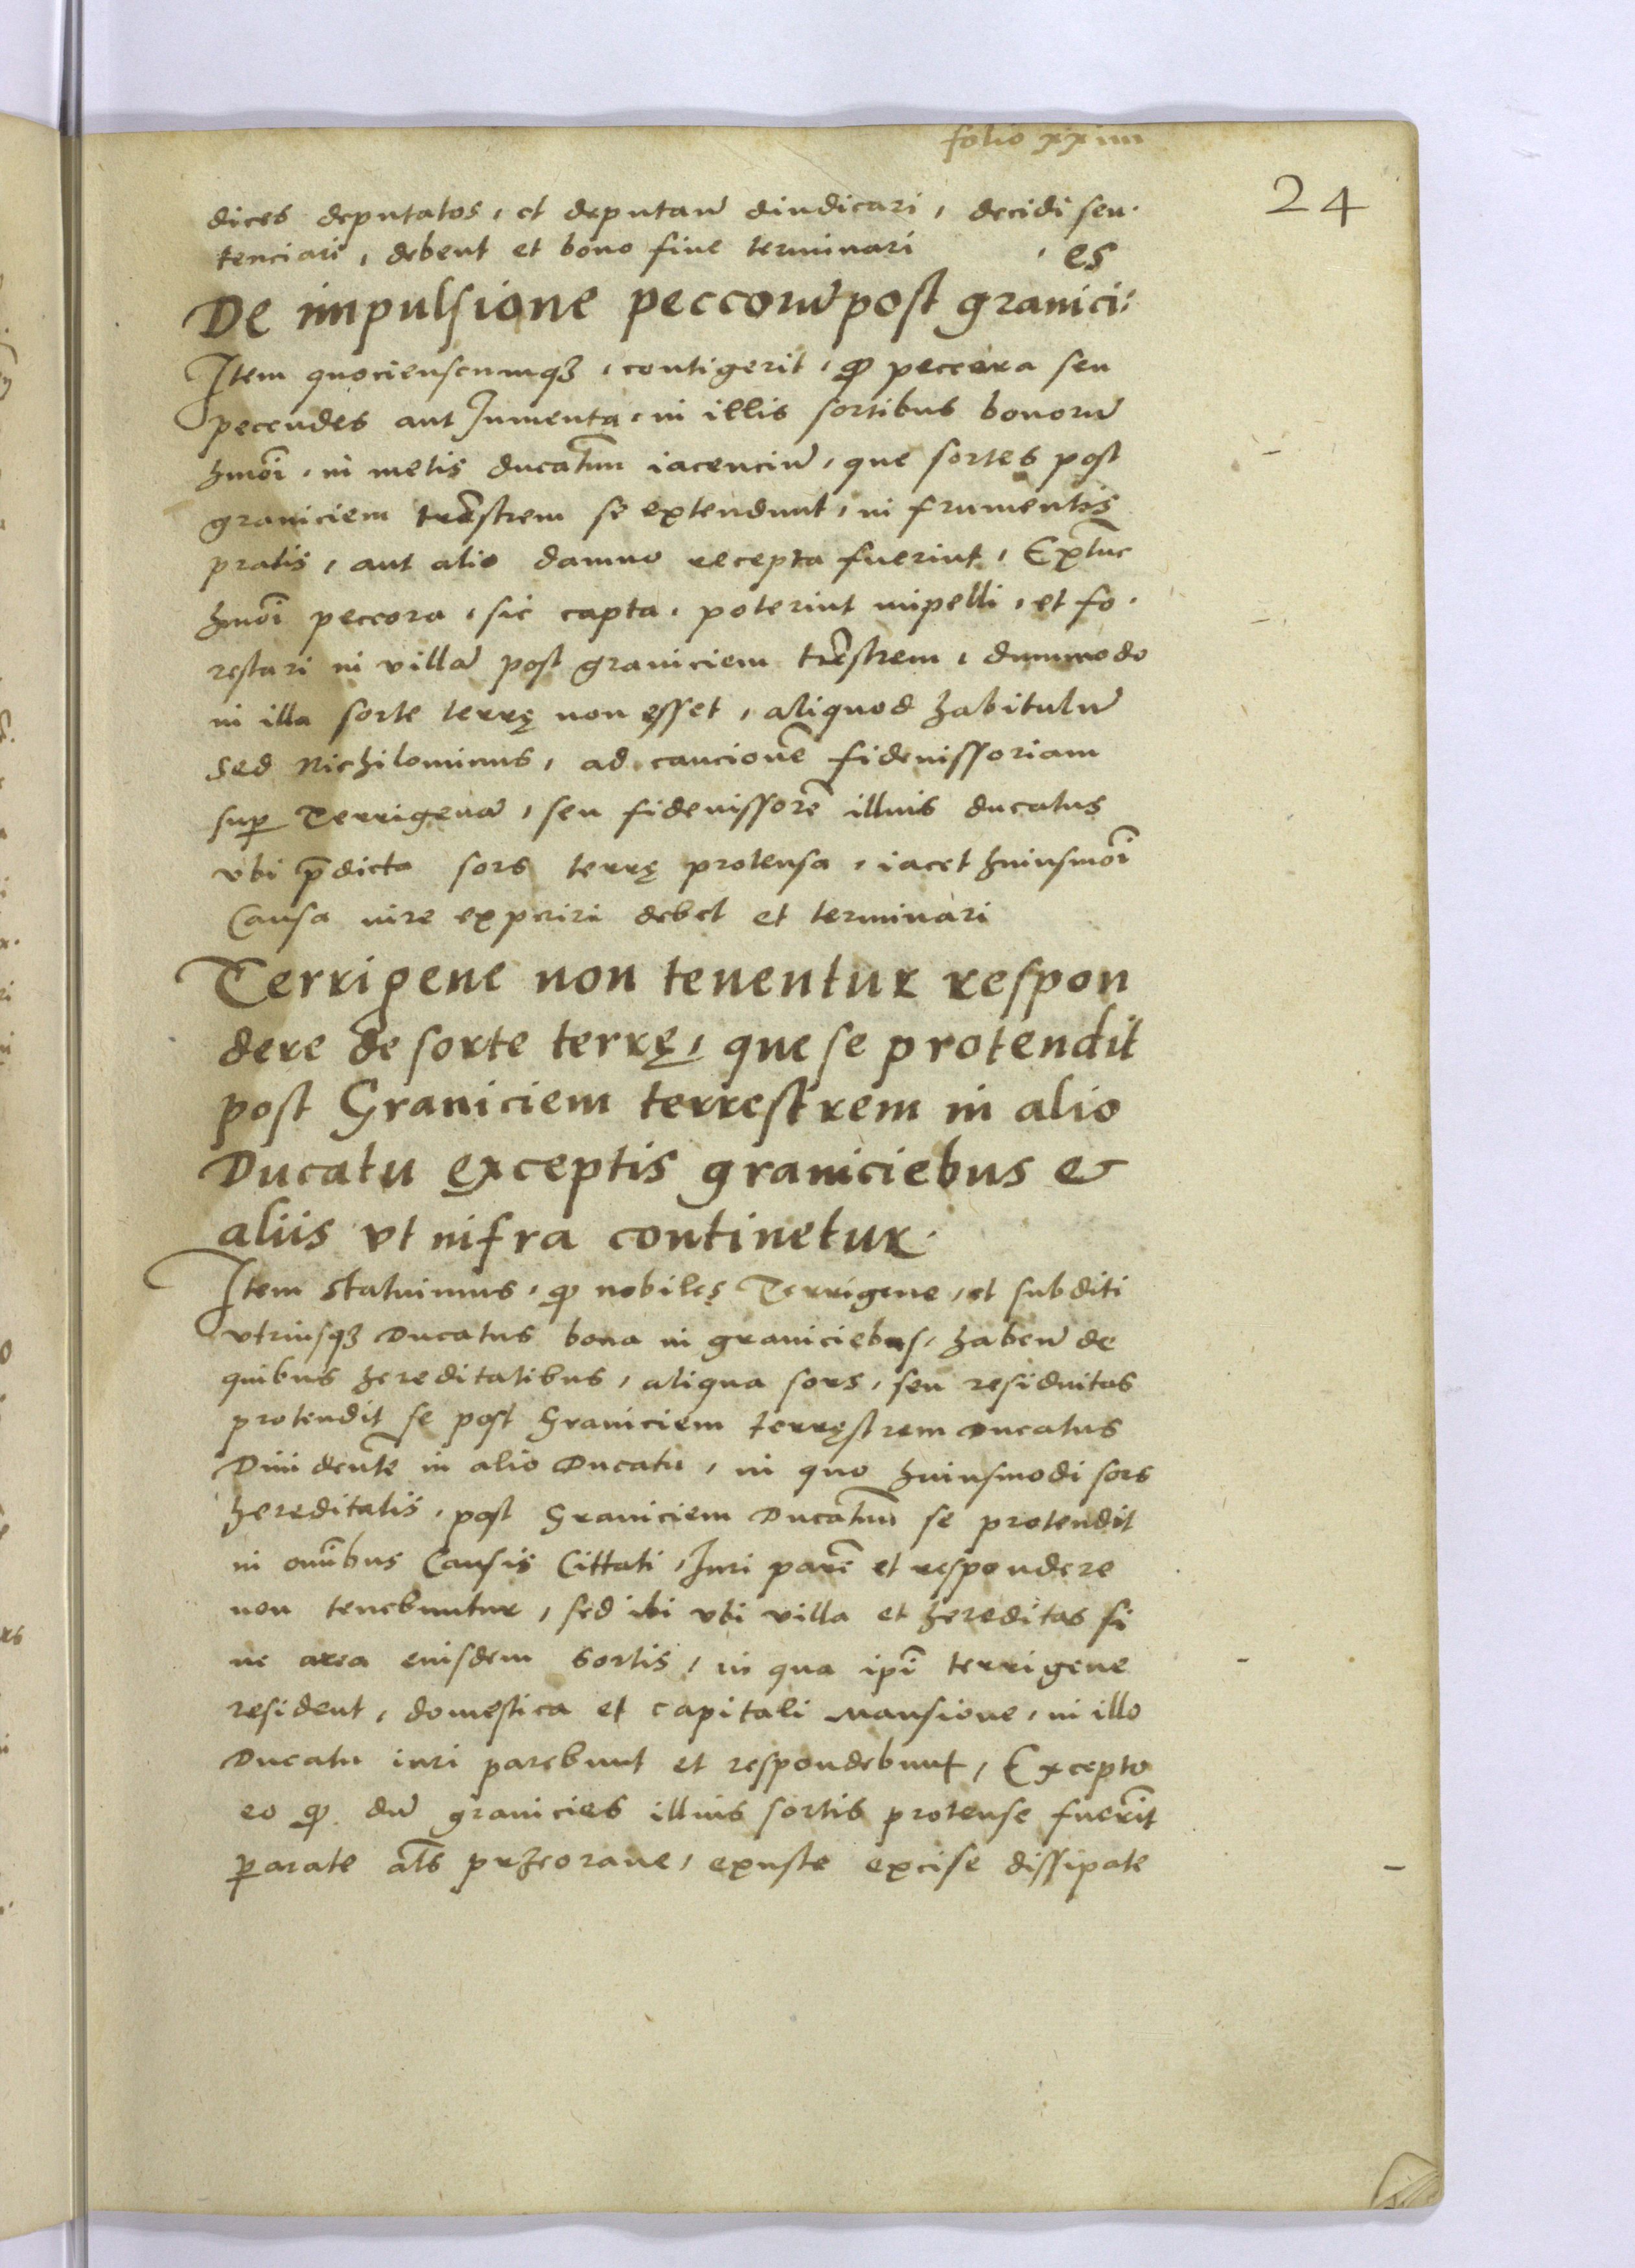 folio xxiiii
24
dices deputatos, et deputan̄ diudicari, decidi sen-
tenciari, debent et bono fine terminari
es
De impulsione peccorū post granici:
Item quocienscumqȝ, contigerit, ꝙ peccora seu
pecudes aut Jumenta, in illis sortibus bonorū
hmōi, in metis ducatuū iacenciū, que sortes post
graniciem trēstrem se extendunt, in frumentis
pratis, aut alio damno recepta fuerint, Extūc
hmōi peccora, sic capta, poterint impelli, et fo-
restari in villā post graniciem trēstrem, dummodo
in illa sorte terrę non esset, aliquod habitulū
sed Nichilominus, ad caucionē fideiussoriam
suꝑ Terrigenā, seu fideiussorē illius ducatus
vbi p̄dicta sors terrę protensa, iacet huiusmōi
Causa iure experiri debet et terminari
Terrigene non tenentur respon
dere de sorte terrę, que se protendit
post Graniciem terrestrem in alio
Ducatu exceptis graniciebus &
aliis vt infra continetur.
Item statuimus, ꝙ nobiles Terrigene, et subditi
vtriusqȝ Ducatus bona in graniciebus, haben̄ de
quibus hereditatibus, aliqua sors, seu residuitas
protendit se post Graniciem terręstrem Ducatus
Diuidentē in alio Ducatu, in quo huiusmodi sors
hereditatis, post Graniciem Ducatuū se protendit
in om̄ibus Causis Cittati, Juri parē et respondere
non tenebuntur, sed ibi vbi villa et hereditas si
ne area eiusdem sortis, in qua ip̄i terrigene
resident, domestica et capitali mansione, in illo
Ducatu iuri parebunt et respondebunt, Excepto
eo ꝙ dū granicies illius sortis protense fuerīt
ꝑarate al̄s przeorane, exuste excise dissipate